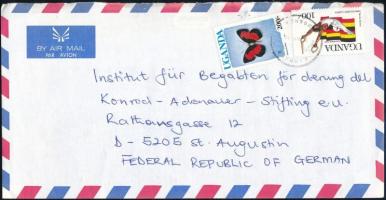 BY AIR MAIL
PAR AVION
UGANDA
UGANDA
100/-
Institut für Begabten för derung del
Konrod - Adenauer - Stifting e.u.
Rathausgasse 12
D - 5205 St. Augustin
FEDERAL REPUBLIC OF GERMAN